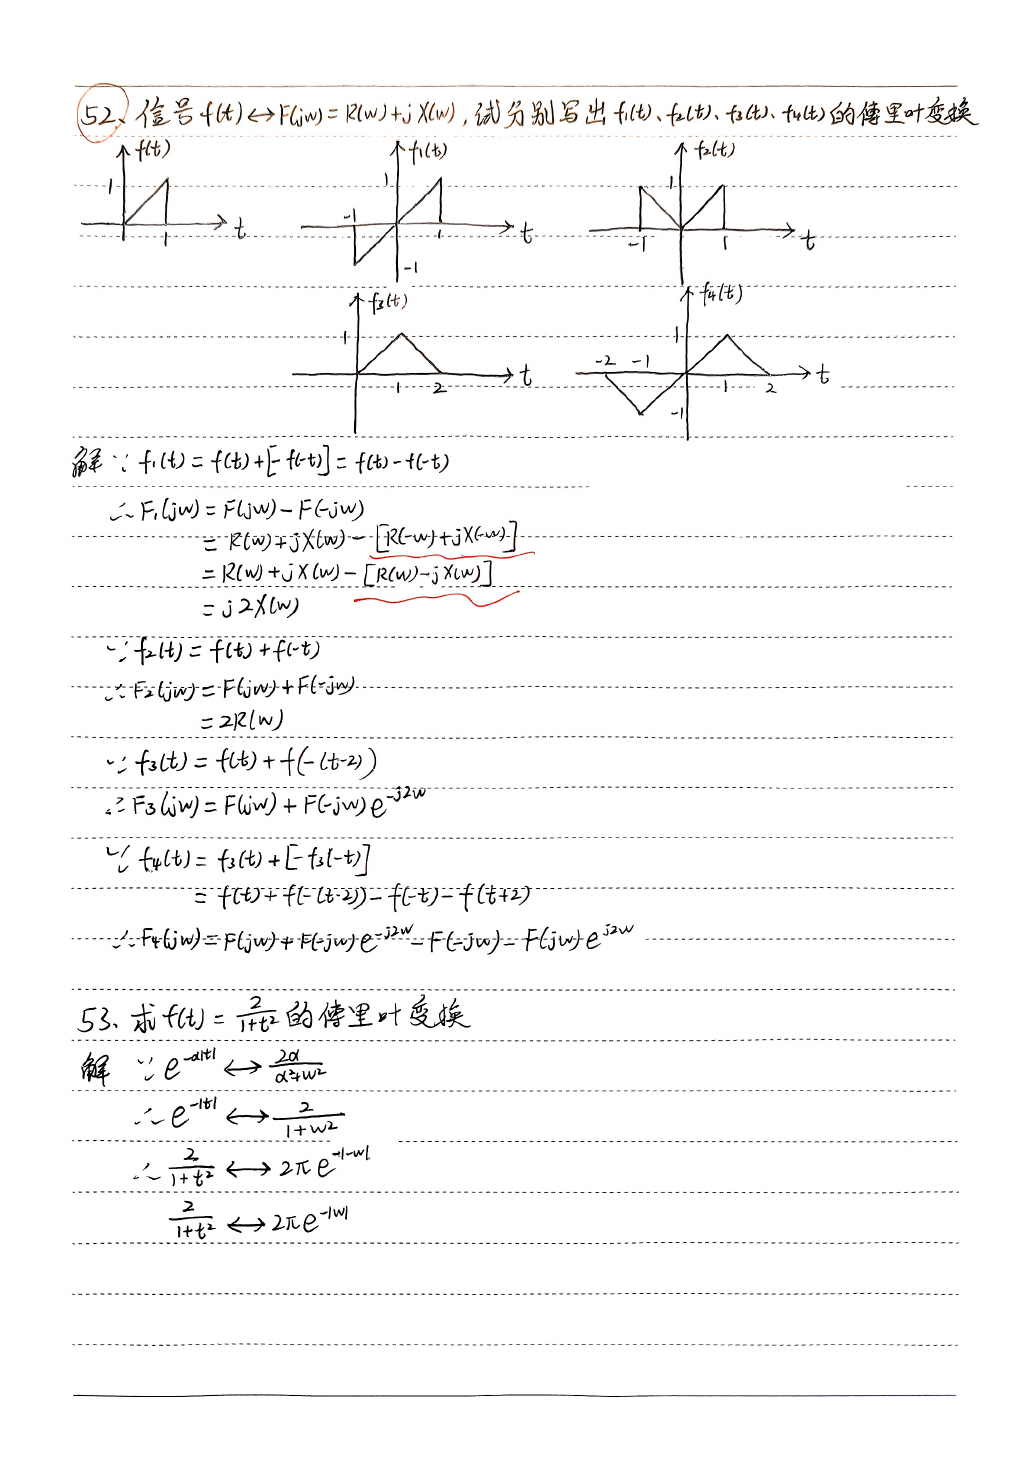 52、信号 f(t)↔F(jw)=R(w)+jX(w),试分别写出 f₁(t)、f₂(t)、f₃(t)、f₄(t)的傅里叶变换
f(t) 1 1 t
f₁(t) 1 -1 1 -1 t
f₂(t) 1 -1 1 t
f₃(t) 1 1 2 t
f₄(t) 1 -2 -1 1 2 -1 t
解 ∵ f₁(t)=f(t)+[-f(-t)]=f(t)-f(-t)
∴ F₁(jw)=F(jw)-F(-jw)
=R(w)+jX(w)-[R(-w)+jX(-w)]
=R(w)+jX(w)-[R(w)-jX(w)]
=j2X(w)
∵ f₂(t)=f(t)+f(-t)
∴ F₂(jw)=F(jw)+F(-jw)
=2R(w)
∵ f₃(t)=f(t)+f(-(t-2))
∴ F₃(jw)=F(jw)+F(-jw)e^{-j2w}
∵ f₄(t)=f₃(t)+[-f₃(-t)]
=f(t)+f(-(t-2))-f(-t)-f(t+2)
∴ F₄(jw)=F(jw)+F(-jw)e^{-j2w}-F(-jw)-F(jw)e^{j2w}
53、求 f(t)=2/(1+t²) 的傅里叶变换
解 ∵ e^{-α|t|}↔2α/(α²+w²)
∴ e^{-|t|}↔2/(1+w²)
∴ 2/(1+t²)↔2πe^{-|-w|}
2/(1+t²)↔2πe^{-|w|}